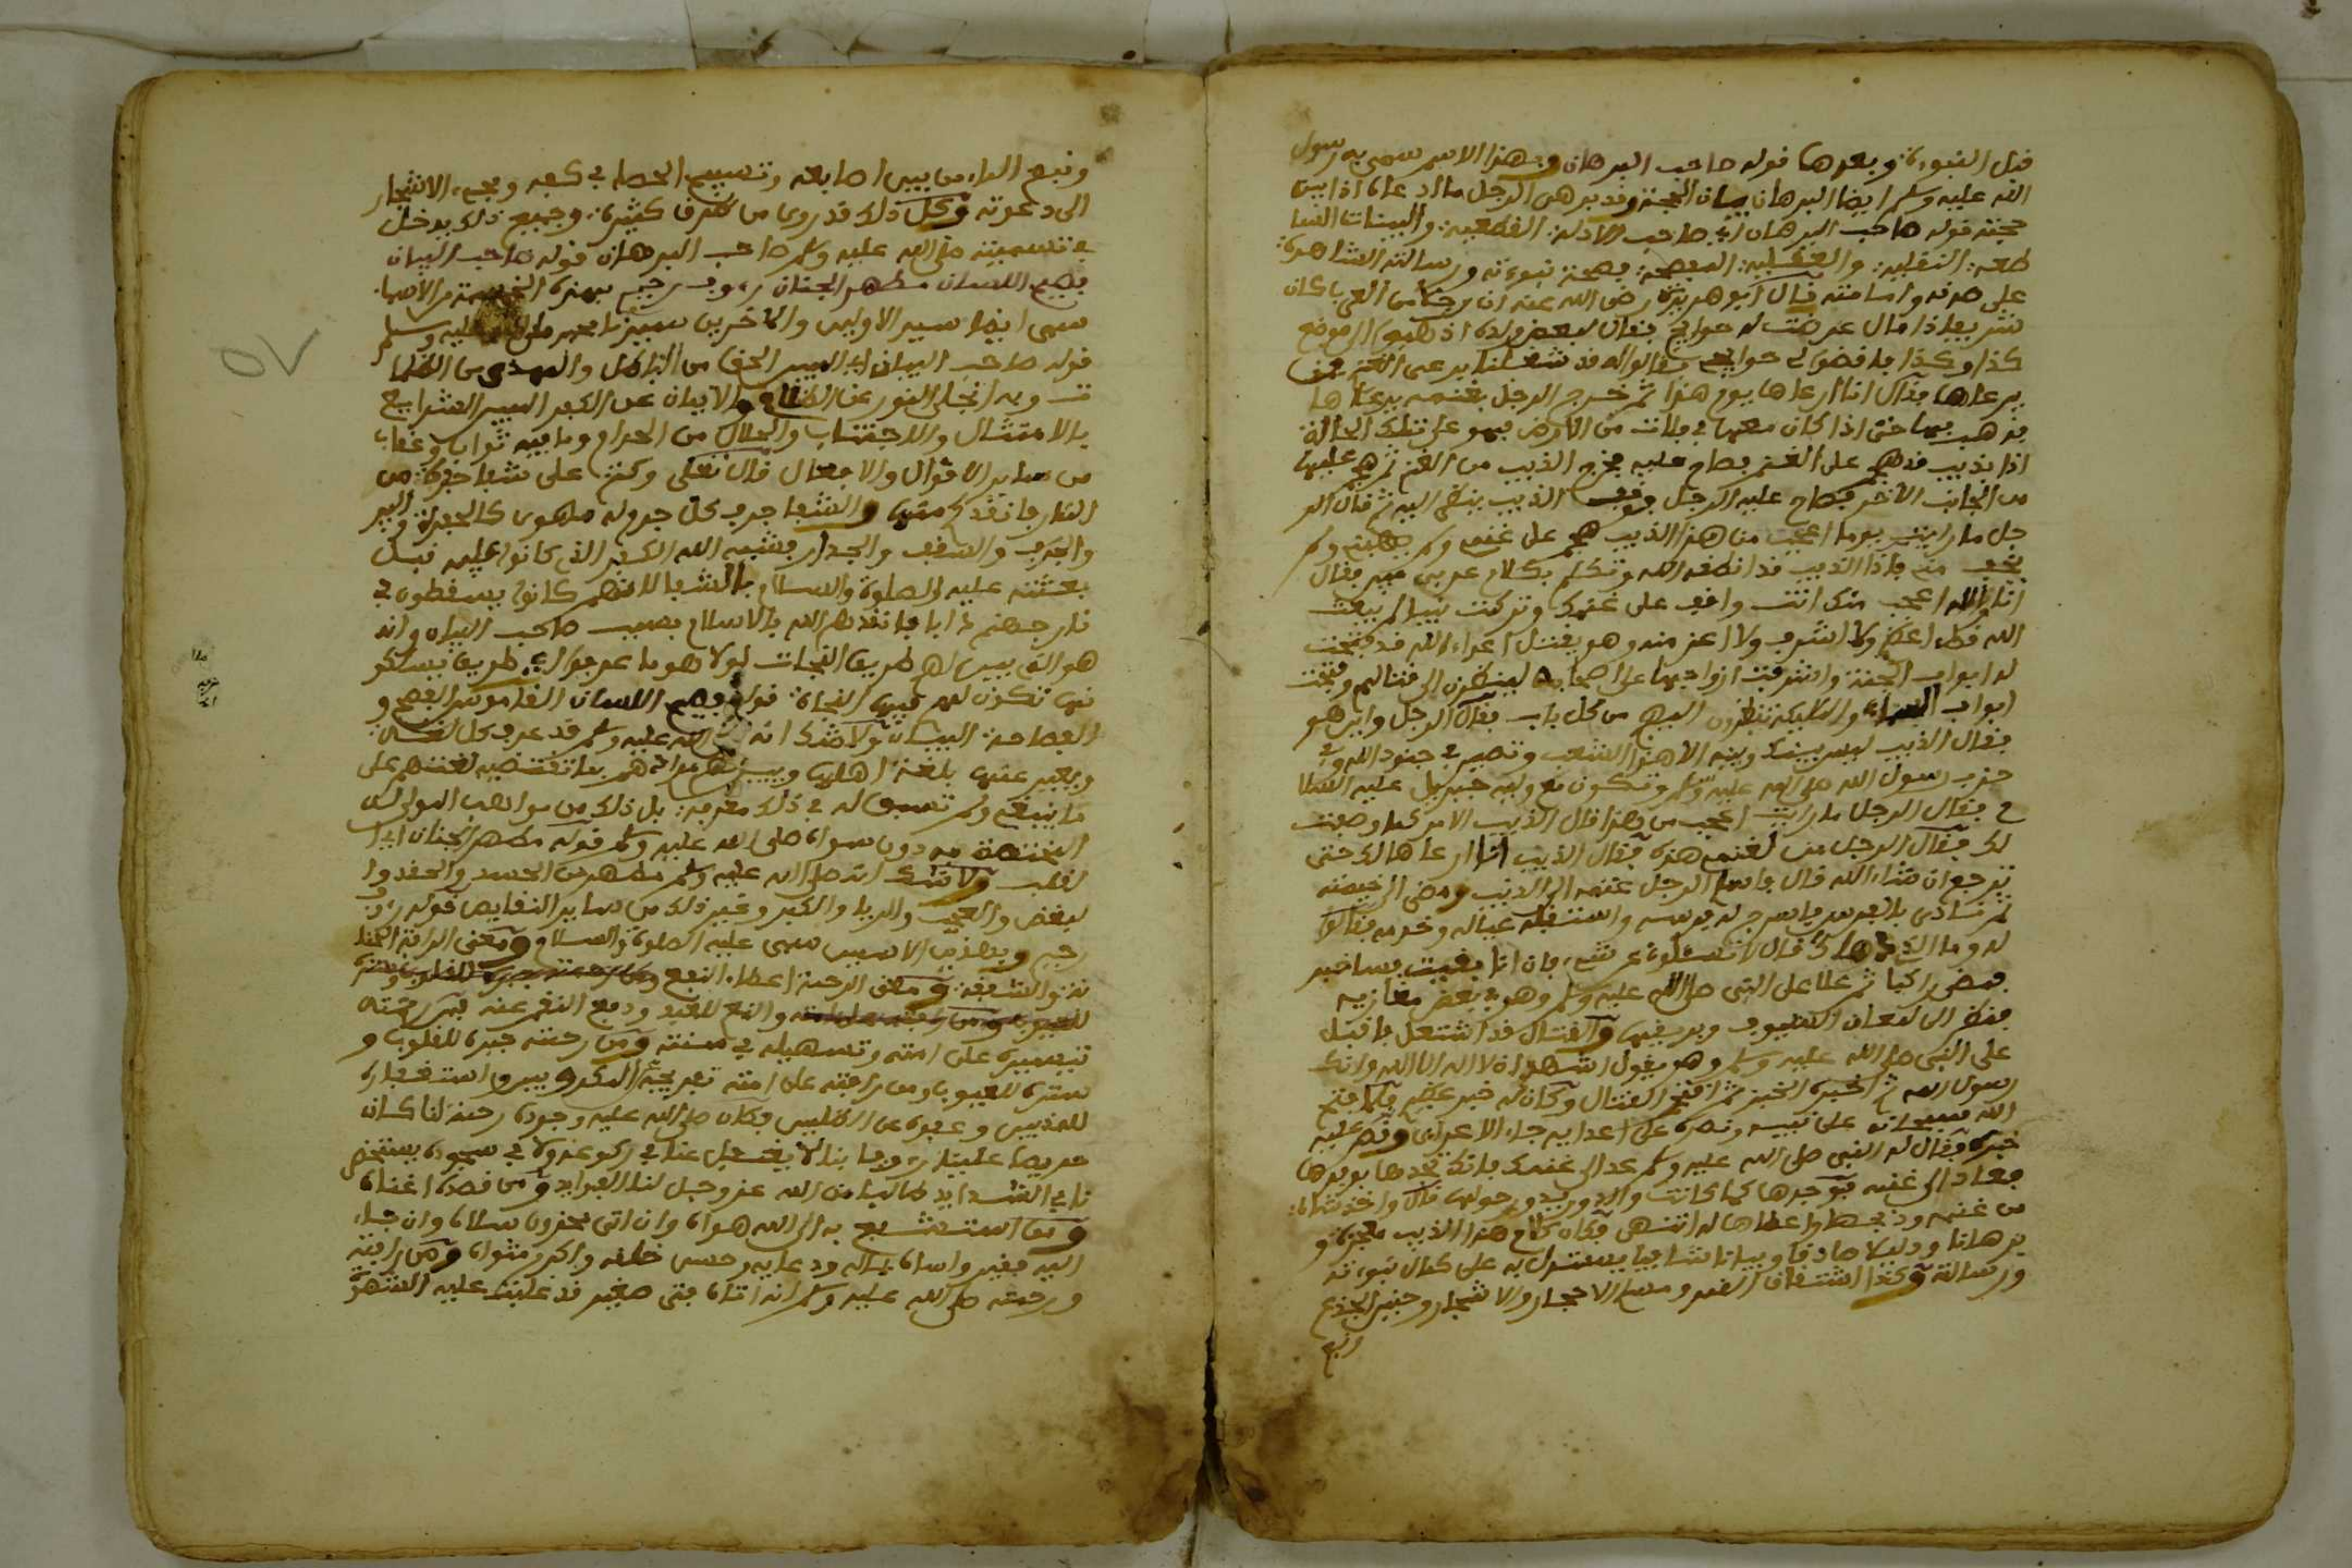 قبل النبوءة وبعدها قوله صاحب البرهان وبهذا الاسم سمي به رسول
الله عليه وسلم ايضا البرهان بيان الحجة وقد برهن الرجل ما ادعاه اذا بين
حجته قوله صاحب البرهان اي صاحب الادلة القطعية والبينات السا
طعة النقلية والعقلية بصحة نبوءته ورسالته الشاهدة
على صدقه وامانته قال ابو هريرة رضي الله عنه ان رجلا من العرب كان
شريفا اذا قال عرضت له حوايج فقال لبعض ولده اذهبوا الى موضع
كذا وكذا فاقضوا لي حوايج فقالوا له قد شغلنا برعي الغنم فمن
يرعاها فقال انا ارعاها يوم هذا ثم خرج الرجل بغنمه يرعاها
فذهب بها حتى اذا كان معها في فلات من الارض فهو على تلك الحالة
اذا بذيب قد هجم على الغنم فصاح عليه فخرج الذيب من الغنم ثم هجم عليها
من الجانب الاخر فصاح عليه الرجل فوقف الذيب ينظر اليه ثم قال الر
جل ما رايت يوما اعجب من هذا الذيب هجم على غنمي ولم ولم
يخف مني فاذا الذيب قد انطقه الله وتكلم بكلام عربي مبين فقال
انا والله اعجب منك انت واقف على غنمك وتركت نبيا لم يبعث
الله قط اعظم ولا اشرف ولا اعز منه وهو يقتل اعداء الله قد فتحت
له ابواب الجنة واشرفت ازواجها على اصحابه لينظرن الى قتالهم وفتحت
ابواب السماء والمليكة ينظرون اليهم من كل باب فقال الرجل واين هو
فقال الذيب ليس بينك وبينه الا هذا الشعب وتصير في جنود الله وفي
حزب رسول الله صلى الله عليه وسلم وتكون مع وليه جبريل عليه السلا
م فقال الرجل ما رايت اعجب من هذا قال الذيب الامر كما وصفت
لك فقال الرجل من لغنمي هذه فقال الذيب انا ارعاها لك حتى
ترجع ان شاء الله قال فاسلم الرجل غنمه الى الذيب ومضى الى خيمته
ثم نادى بالفرس فاسرج له فرسه واستقبله عياله وخدمه فقالوا
له وما الذي دهاك قال لا تسئلوني عن شيء فان انا بقيت فساخبر
فمضى راكبا ثم علا على النبي صلى الله عليه وسلم وهو في بعض مغازيه
فنظر الى لمعان السيوف وبريقها والقتال قد اشتعل فاقبل
على النبي صلى الله عليه وسلم وهو يقول اشهد ان لا اله الا الله وانك
رسول الله ثم اخبره الخبر ثم اقتحم القتال وكان له خبر عظيم فلما فتح
الله سبحانه على نبيه ونصره على اعدايه جاء الاعرابي وقص عليه
خبره فقال له النبي صلى الله عليه وسلم عد الى غنمك فانك تجدها بوفرها
فعاد الى غنمه فوجدها كما كانت والذيب يدور حولها قال واخذ شاة
من غنمه وذبحها واعطاها له انتهى فكان كلام هذا الذيب معجزة و
برهانا ودليلا صادقا وبيانا شافيا يستدل به على كمال نبوءته
ورسالته وكذا انشقاق القمر وسلام الاحجار والاشجار وحنين الجذع
ونبع
ونبع الماء من بين اصابعه وتسبيح الحصا في كفه ومجيء الاشجار
الى دعوته وكل ذلك قد روي من طرق كثيرة وجميع ذلك يدخل
في تسميته صلى الله عليه وسلم صاحب البرهان قوله صاحب البيان
فصيح اللسان مطهر الجنان رءوف رحيم بهذه الخمسة من الاسماء
سمي ايضا سيد الاولين والاخرين سيدنا محمد صلى الله عليه وسلم
قوله صاحب البيان اي المبين الحق من الباطل والهدى من الظلما
ت وبه انجلى النور عن الظلام والايمان عن الكفر المبين الشرايع
بالامتثال والاجتناب والحلال من الحرام وما فيه ثواب وعقاب
من ساير الاقوال والافعال قال تعلى وكنتم على شفا حفرة من
النار فانقذكم منها والشفا حرف كل جرم له مهوى كالحفرة والبير
والجرف والسقف والجدار فشبه الله الكفر الذي كانوا عليه قبل
بعثته عليه الصلوة والسلام بالشفا لانهم كانوا يسقطون في
نار جهنم دابا فانقذهم الله بالاسلام بسبب صاحب البيان وانه
هو الذي بين لهم طريق النجات لولا هو ما عرفوا اي طريق يسلكو
نها تكون لهم فيها النجاة قوله فصيح اللسان القاموس الفصح و
الفصاحة البيان ولا شك انه صلى الله عليه وسلم قد عرف كل لغة
ويعبر عنها بلغة اهلها ويبين لهم مرادهم بما تقتضيه لغتهم على
ما ينبغي ولم تسبق له في ذلك معرفة بل ذلك من مواهب المولى
المختصة به دون سواه صلى الله عليه وسلم قوله مطهر الجنان اي ا
لقلب ولا شك انه صلى الله عليه وسلم مطهر من الحسد والحقد وا
لبغض والعجب والريا والكبر وغير ذلك من ساير النقايص قوله رءوف
رحيم وبهذين الاسمين سمي عليه الصلوة والسلام ومعنى الرافة الحنا
نة والشفقة ومعنى الرحمة اعطاء النفع
والنفع للعبد ودفع الضر عنه فمن رحمته
تيسيره على امته وتسهيله في سنته ومن رحمته جبره للقلوب و
ستره للعيوب ومن رافته على امته تفريجه المكروبين واستغفاره
للمذنبين وعفوه عن الظالمين فكان صلى الله عليه وجوده رحمة لنا كان
حريصا علينا رءوفا بنا لا يغفل عنا في ركوعه ولا في سجوده يستخلص
نا في الشدايد طالبا من الله عز وجل لنا الفوايد ومن قصده اغناه
ومن استشفع به الى الله هواه وان اتى محزون سلاه وان جاء
اليه فقير واساه بماله ودعايه وحسن خلقه واكرم مثواه ومن رافته
ورحمته صلى الله عليه وسلم انه اتاه فتى صغير قد غلبت عليه الشهوة